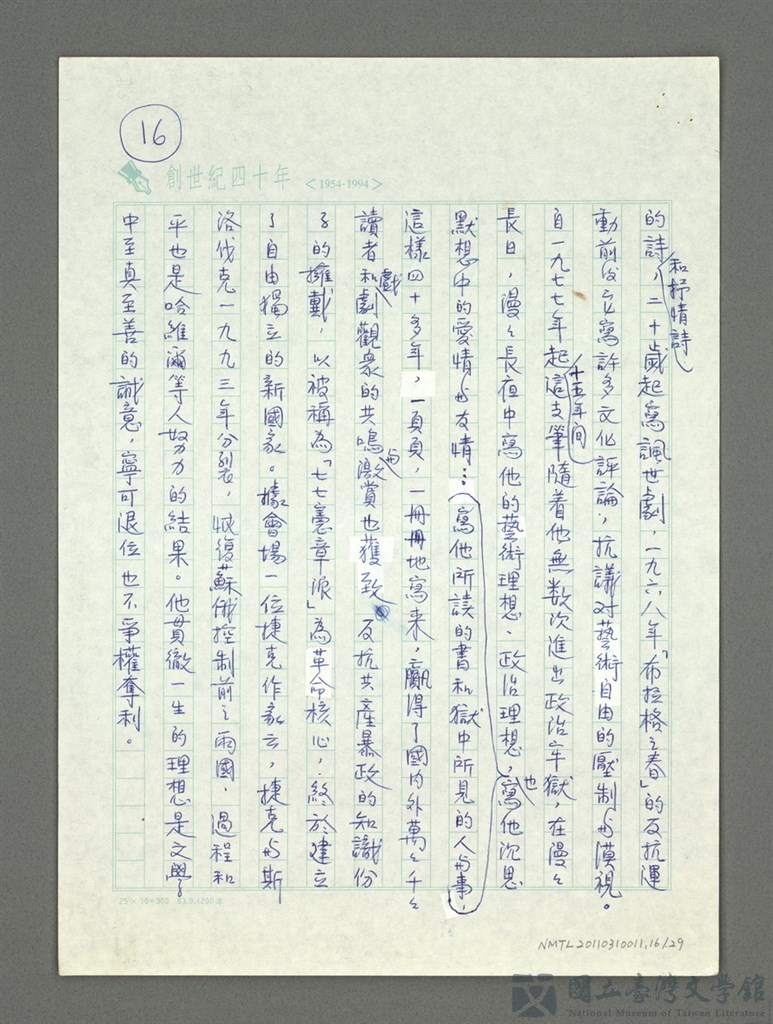 16
創世紀四十年 <1954-1994>
的詩，和抒情詩，二十歲起寫諷世劇，一九六八年「布拉格之春」的反抗運
動前後立寫許多文化評論，抗議对藝術自由的壓制与漠視。
自一九七七年起十五年间這支筆隨着他無数次進出政治牢獄，在漫々
長日，漫々長夜中寫他的藝術理想、政治理想，也寫他沉思
默想中的愛情与友情…（寫他所读的書和獄中所見的人与事，
這樣四十多年，一頁頁，一冊冊地寫来，贏得了國内外萬々千々
讀者和戲劇觀衆的共鳴与激賞也獲致反抗共產暴政的知識份
子的擁戴，以被稱為「七七憲章派」為革命核心，終於建立
了自由獨立的新國家。據會場一位捷克作家云，捷克与斯
洛伐克一九九三年分裂，恢復蘇俄控制前之兩國，過程和
平也是哈維爾等人努力的結果。他貫徹一生的理想是文學
中至真至善的誠意，寧可退位也不爭權奪利。
25×10=300
NMTL20110310011,16/29
國立臺灣文學館
National Museum of Taiwan Literature